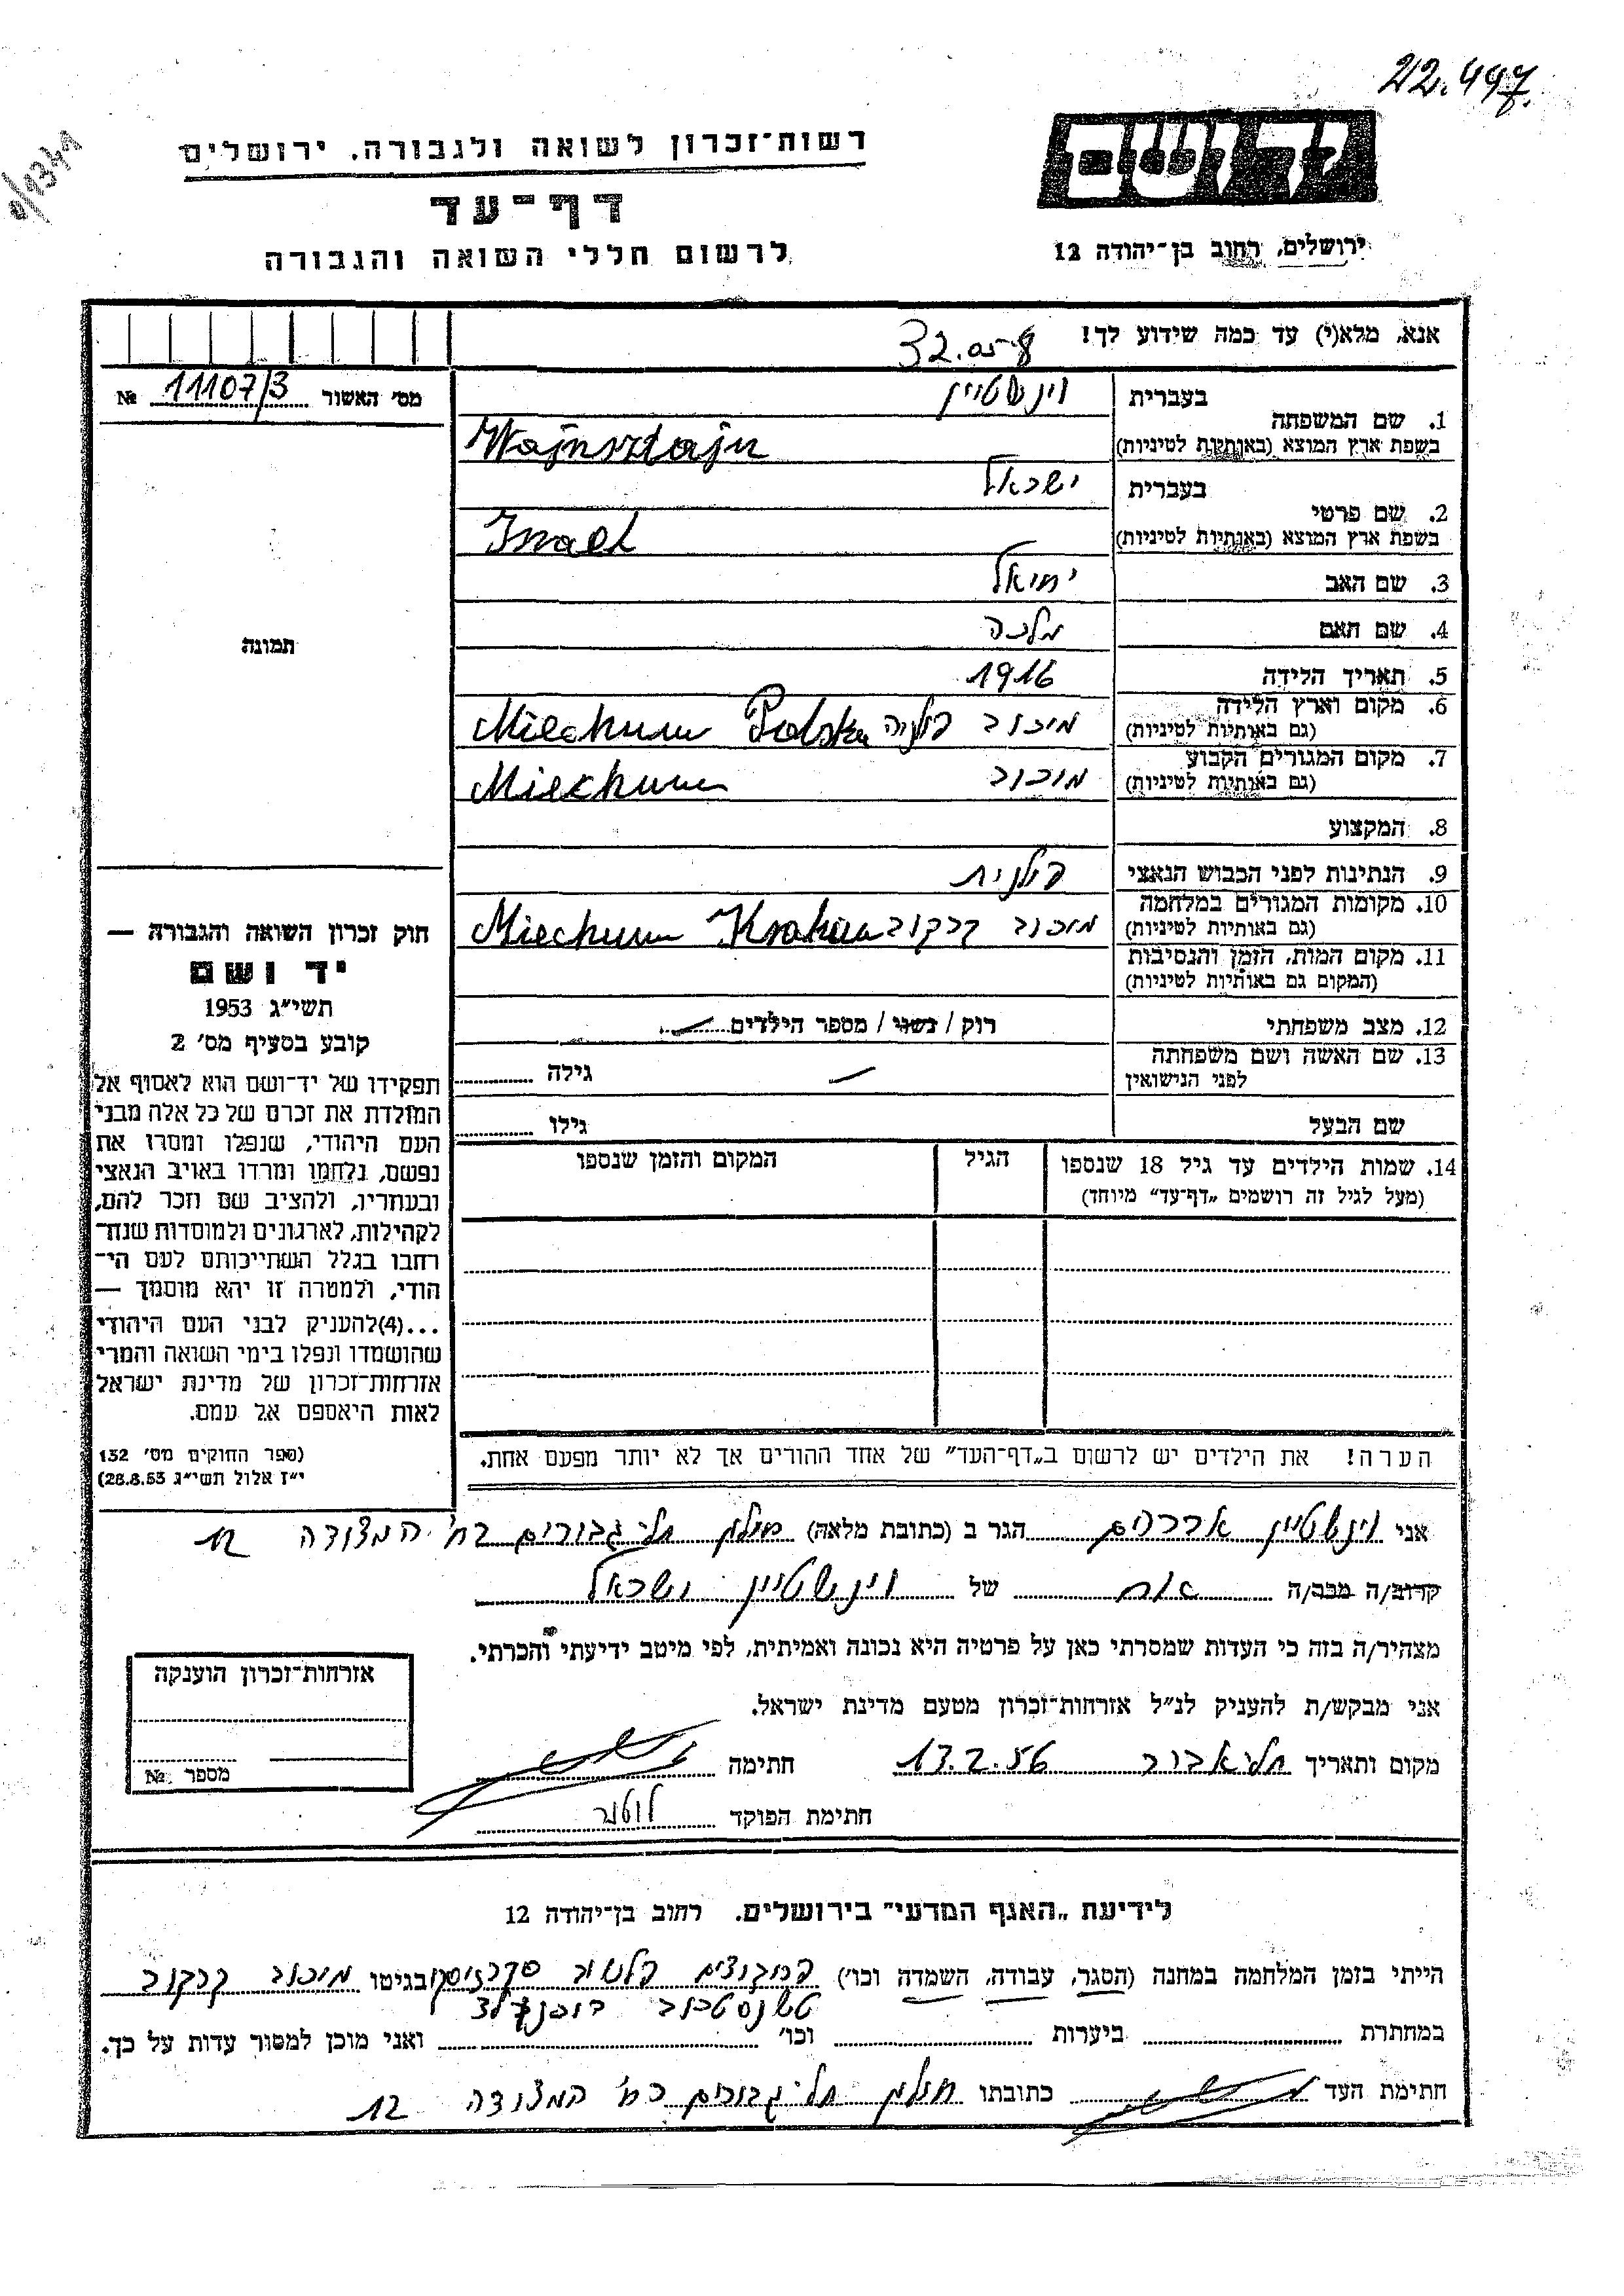 22.497
רשות־זכרון לשואה ולגבורה. ירושלים
דף־עד
לרשום חללי השואה והגבורה
יד ושם
ירושלים, רחוב בן־יהודה 12
אנא, מלא(י) עד כמה שידוע לך!
מס' האשור 11107/3 №
1. שם המשפחה
בעברית וינשטיין
בשפת ארץ המוצא (באותיות לטיניות) Wajnsztajn
2. שם פרטי
בעברית ישראל
בשפת ארץ המוצא (באותיות לטיניות) Israel
3. שם האב
4. שם האם מלכה
5. תאריך הלידה 1916
6. מקום וארץ הלידה מיכוב פולניה Miechuw Polska
(גם באותיות לטיניות)
7. מקום המגורים הקבוע מיכוב Miechuw
(גם באותיות לטיניות)
8. המקצוע
9. הנתינות לפני הכבוש הנאצי פולנית
10. מקומות המגורים במלחמה מיכוב קרקוב Miechuw
(גם באותיות לטיניות)
11. מקום המות, הזמן והנסיבות
(המקום גם באותיות לטיניות)
12. מצב משפחתי רוק / נשוי / מספר הילדים
13. שם האשה ושם משפחתה
לפני הנישואין
גילה
שם הבעל
גילו
14. שמות הילדים עד גיל 18 שנספו
(מעל לגיל זה רושמים „דף־עד" מיוחד)
הגיל
המקום והזמן שנספו
הערה! את הילדים יש לרשום ב„דף־העד" של אחד ההורים אך לא יותר מפעם אחת.
תמונה
חוק זכרון השואה והגבורה —
יד ושם
תשי"ג 1953
קובע בסעיף מס' 2
תפקידו של יד־ושם הוא לאסוף אל
המולדת את זכרם של כל אלה מבני
העם היהודי, שנפלו ומסרו את
נפשם, נלחמו ומרדו באויב הנאצי
ובעוזריו, ולהציב שם וזכר להם,
לקהילות, לארגונים ולמוסדות שנח־
רבו בגלל השתייכותם לעם הי־
הודי, ולמטרה זו יהא מוסמך —
...(4) להעניק לבני העם היהודי
שהושמדו ונפלו בימי השואה והמרי
אזרחות־זכרון של מדינת ישראל
לאות היאספם אל עמם.
(ספר החוקים מס' 132
י"ז אלול תשי"ג 28.8.53)
אני וינשטיין אברהם הגר ב (כתובת מלאה) חולון תל גבורים רח' המצודה 12
קרוב/ה מכר/ה אח של וינשטיין ישראל
מצהיר/ה בזה כי העדות שמסרתי כאן על פרטיה היא נכונה ואמיתית, לפי מיטב ידיעתי והכרתי.
אני מבקש/ת להעניק לנ"ל אזרחות־זכרון מטעם מדינת ישראל.
מקום ותאריך תל אביב 13.2.56 חתימה
חתימת הפוקד
אזרחות־זכרון הוענקה
מספר №
לידיעת „האגף המדעי" בירושלים. רחוב בן־יהודה 12
הייתי בזמן המלחמה במחנה (הסגר, עבודה, השמדה וכו') בגיטו מיכוב קרקוב
במחתרת ביערות וכו' ואני מוכן למסור עדות על כך.
חתימת העד כתובתו חולון תל גבורים רח' המצודה 12